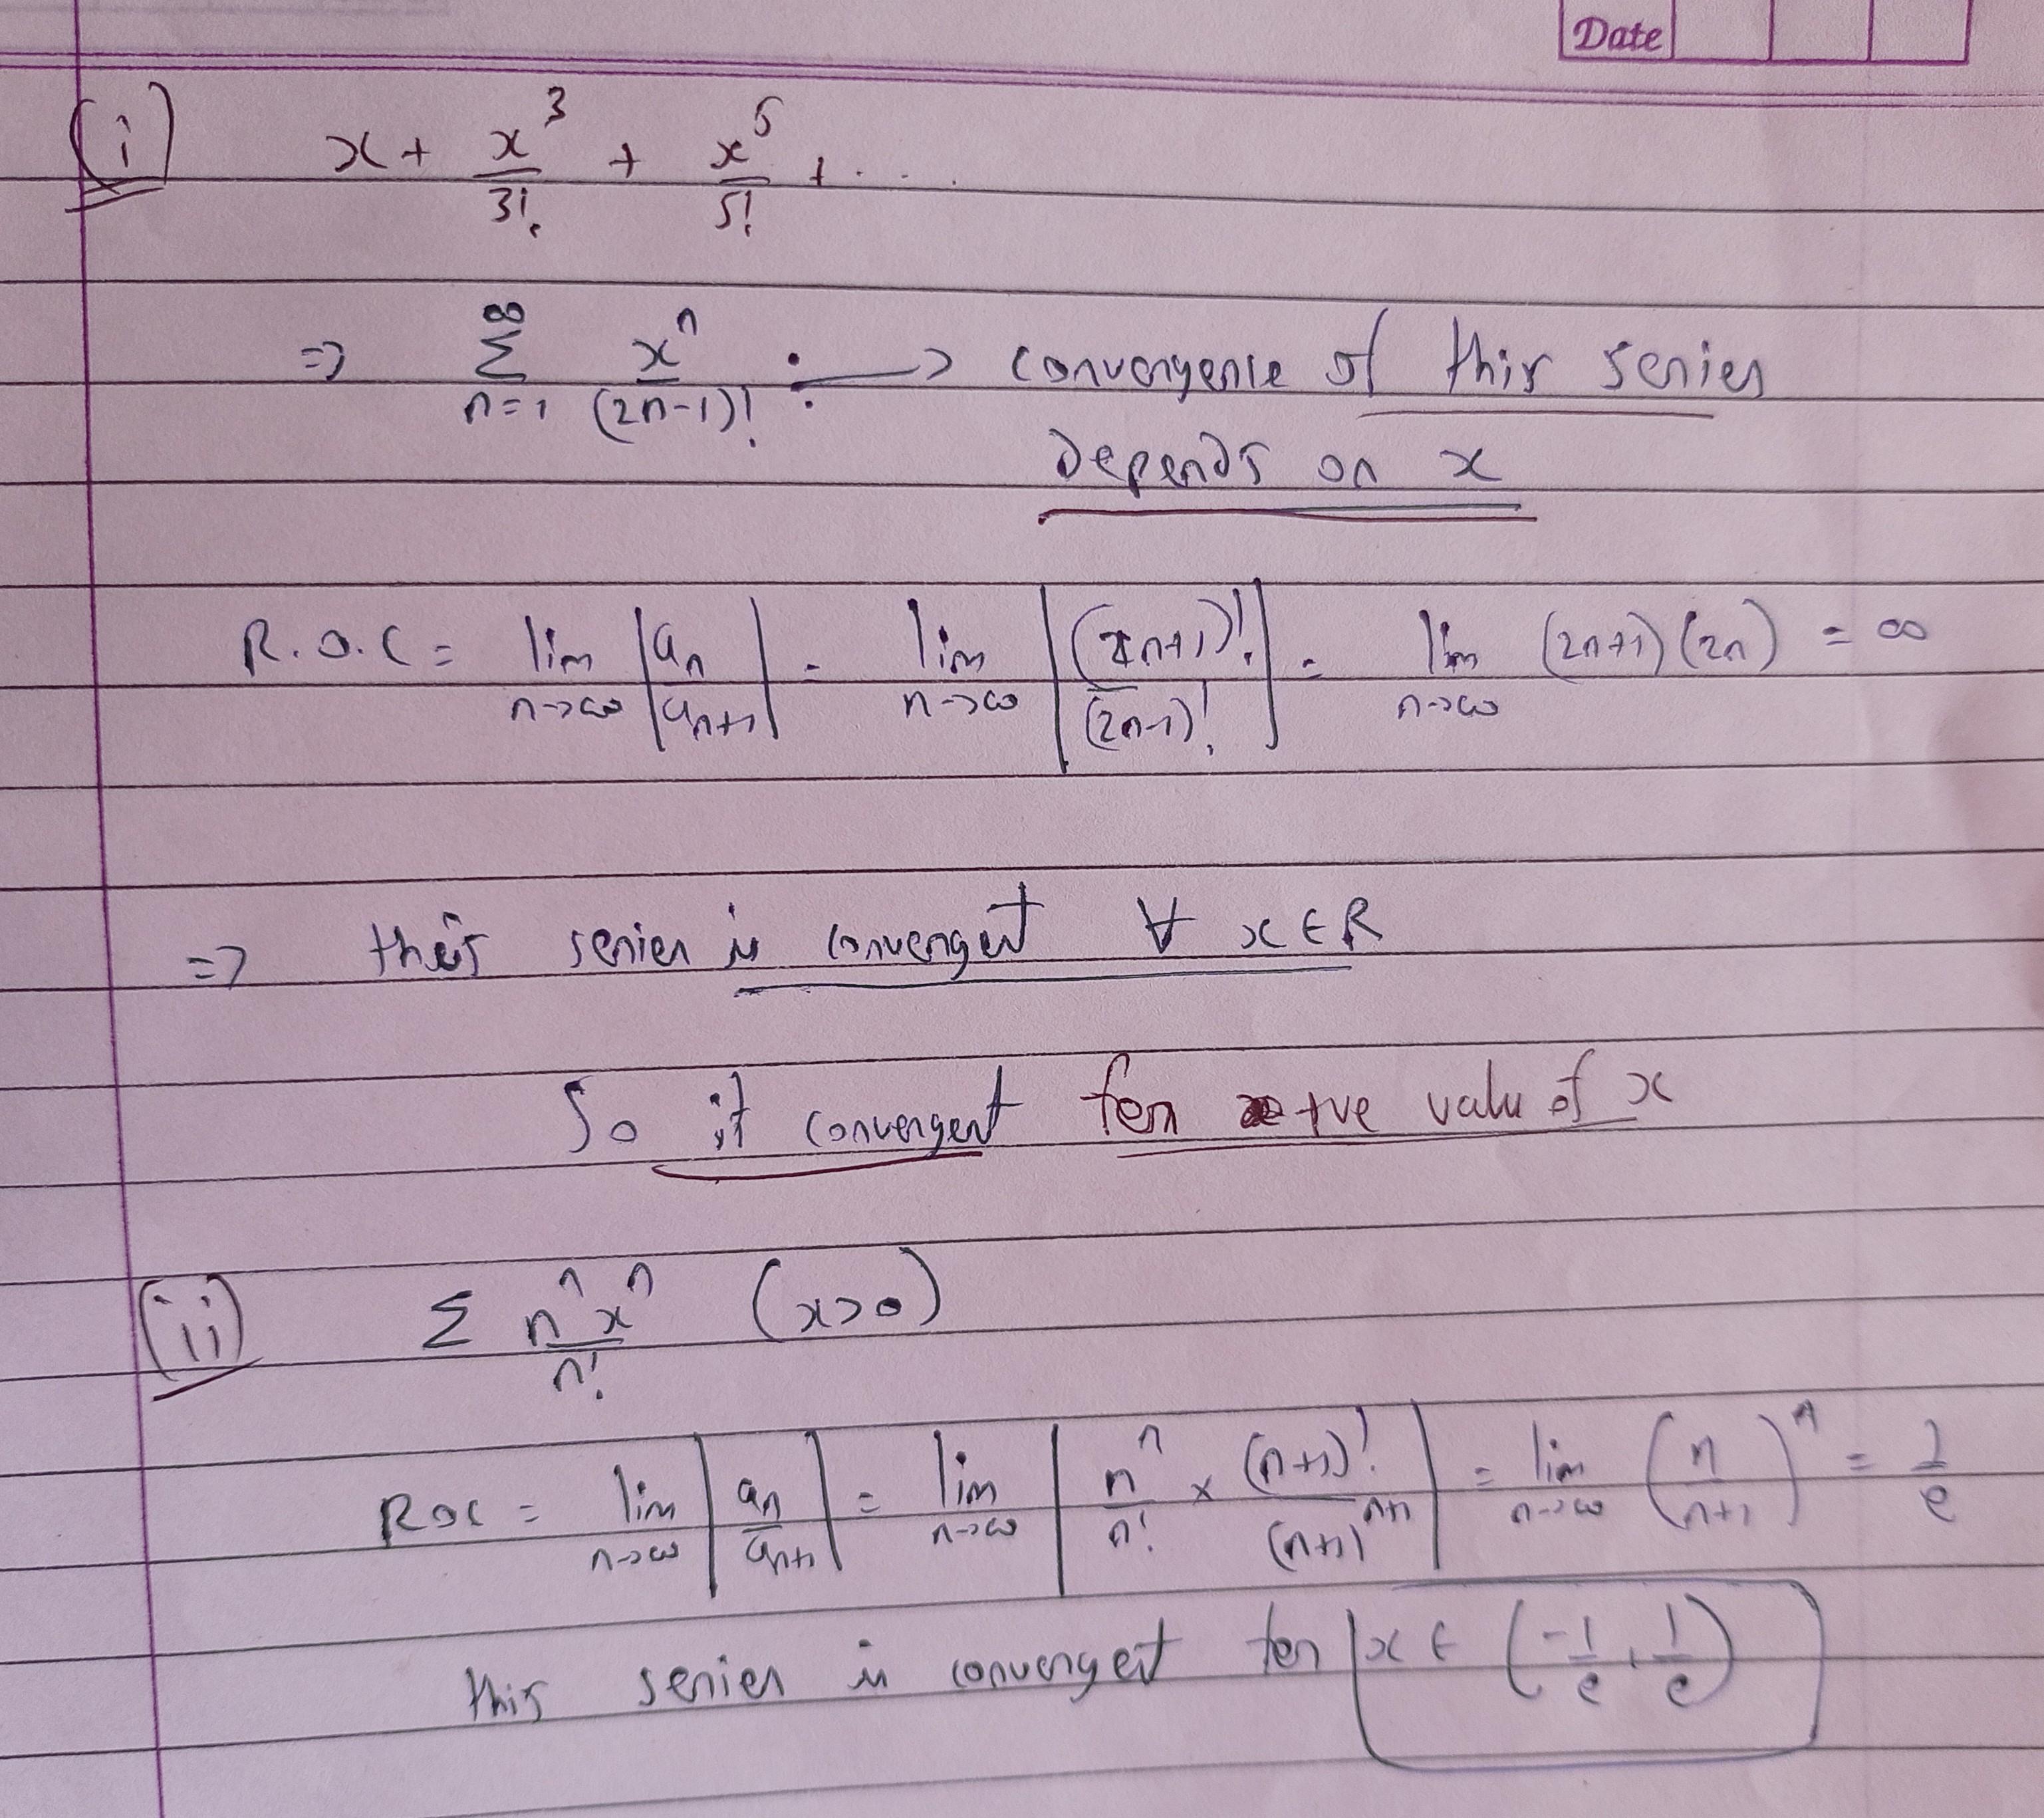 Date
(i) x + x³/3! + x⁵/5! + ....
=> ∞Σn=1 xⁿ/(2n-1)! : → convergence of this series
Depends on x
R.O.C = lim n→∞ |aₙ/aₙ₊₁| = lim n→∞ |(2n+1)!/(2n-1)!| = lim n→∞ (2n+1)(2n) = ∞
=> this series is convergent ∀ x ∈ R
So it convergent for +ve value of x
(ii) Σ nⁿxⁿ/n! (x>0)
ROC = lim n→∞ |aₙ/aₙ₊₁| = lim n→∞ |nⁿ/n! × (n+1)!/(n+1)ⁿ⁺¹| = lim n→∞ (n/n+1)ⁿ = 1/e
this series is convergent for x ∈ (-1/e, 1/e)